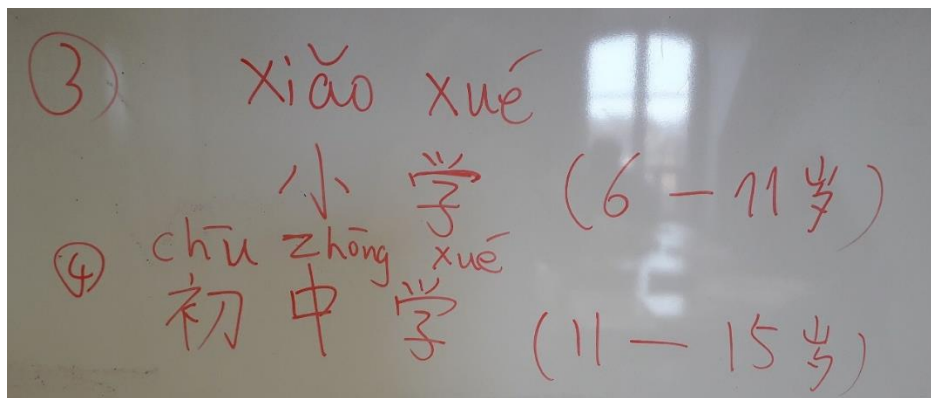 ③ xiǎo xué
小 学 (6 — 11岁)
④ chū zhōng xué
初 中 学 (11 — 15岁)